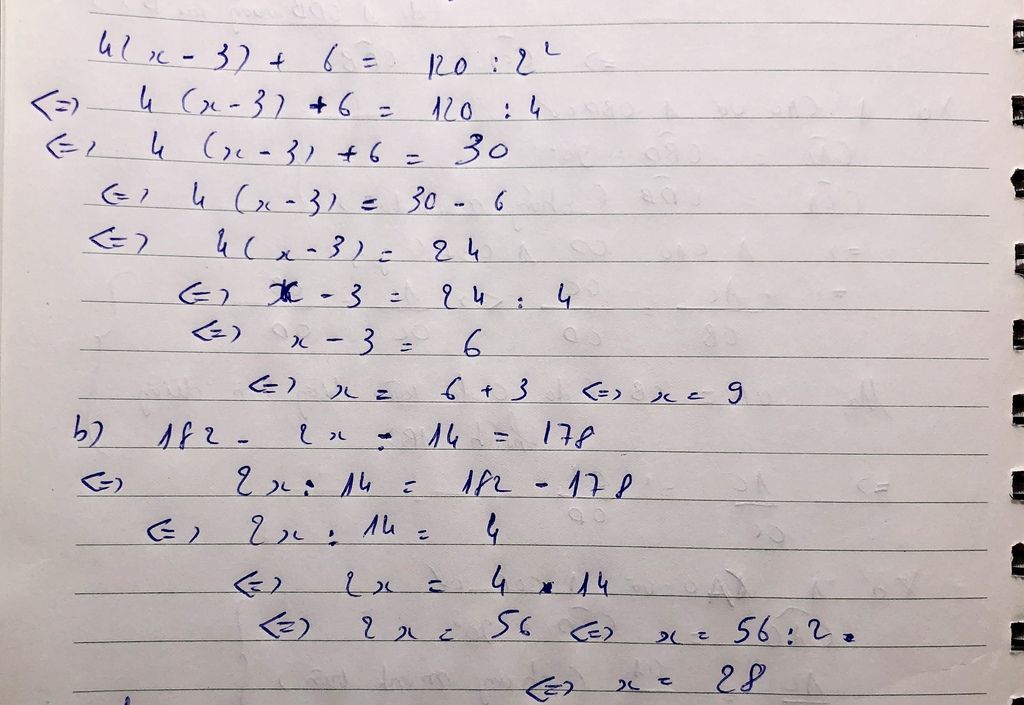 4(x - 3) + 6 = 120 : 2²
<=> 4 (x - 3) + 6 = 120 : 4
<=> 4 (x - 3) + 6 = 30
<=> 4 (x - 3) = 30 - 6
<=> 4 (x - 3) = 24
<=> x - 3 = 24 : 4
<=> x - 3 = 6
<=> x = 6 + 3 <=> x = 9
b) 182 - 2x : 14 = 178
<=> 2x : 14 = 182 - 178
<=> 2x : 14 = 4
<=> 2x = 4 . 14
<=> 2x = 56 <=> x = 56 : 2.
<=> x = 28